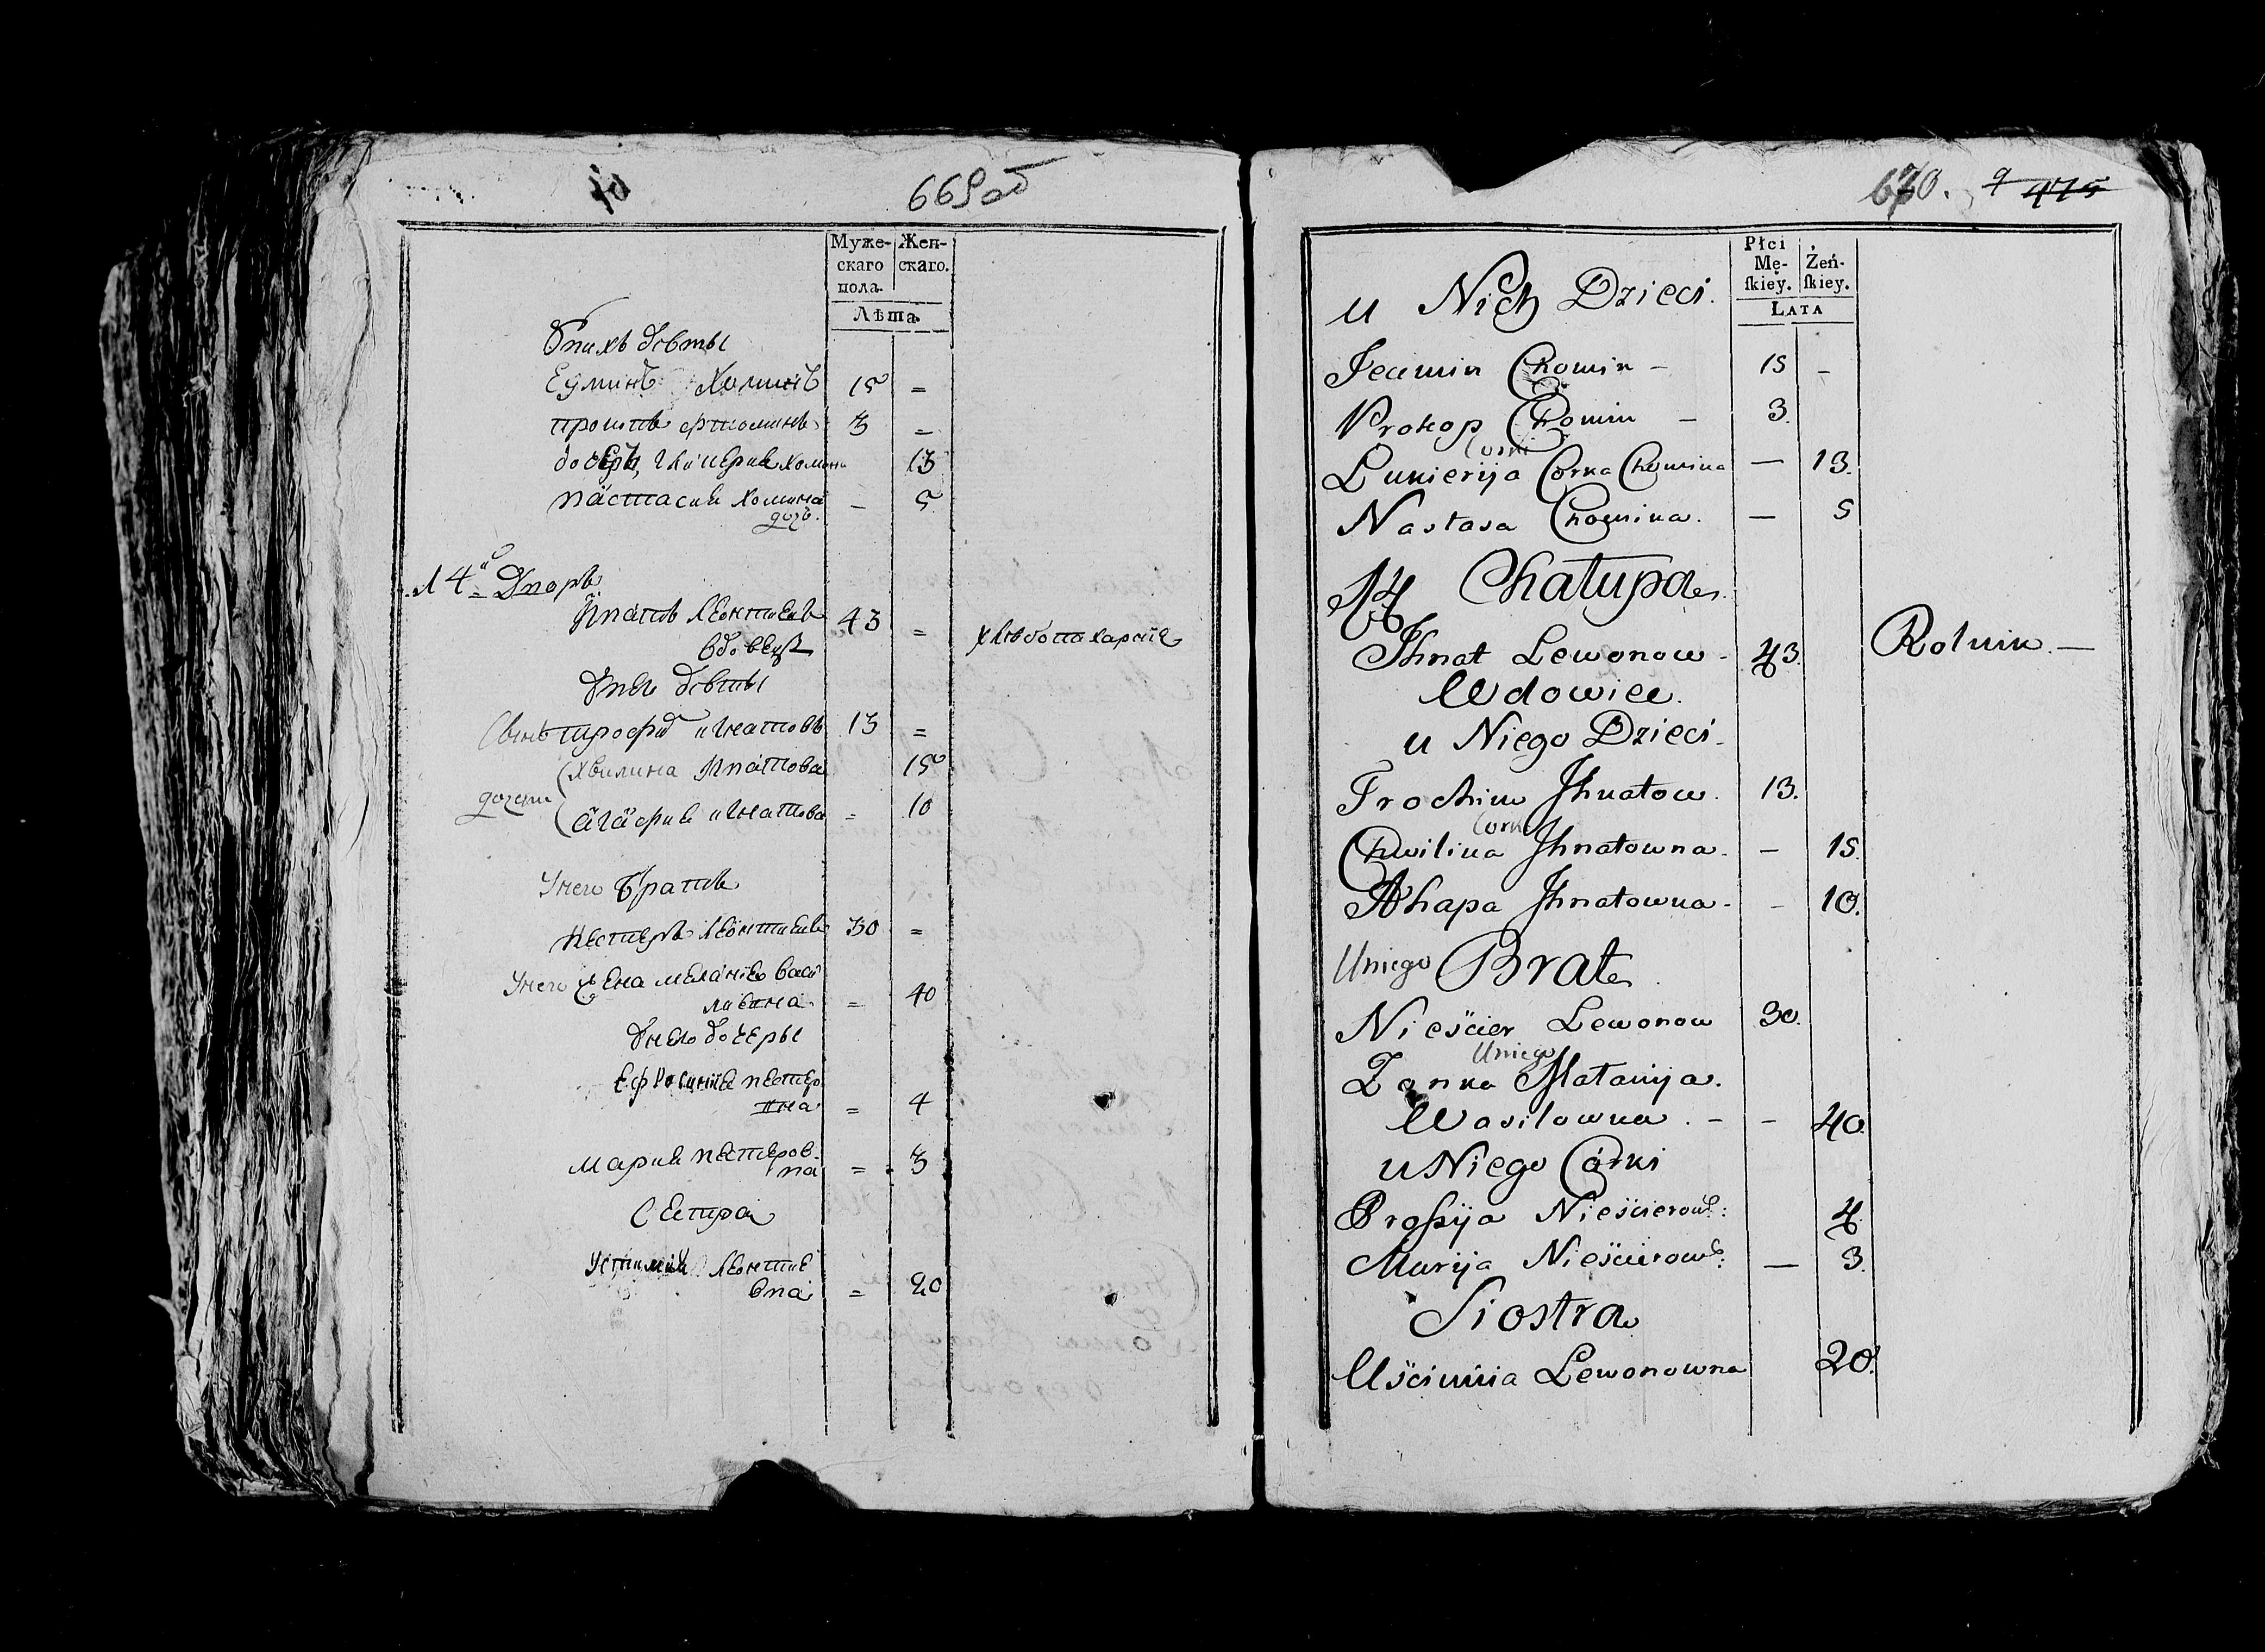 10
669 об
Муже-
скаго
пола.
Жен-
скаго.
Лѣта.
Унихъ дѣти
Еуминъ Хоминъ 15 =
прокопъ фтоминъ 3 =
дочерь, Гликерия Хомина 13
настасия хомина — 5
дочь.
14й Дворъ
Игнатъ Леонтиевъ 43 = хлѣбопахарныe
вдовецъ
Унего дѣти
Сынъ трофим игнатовъ 13 =
дочери
Хвилина Игнатова 15
агафия игнатова = 10
Унего Братъ
нестеръ леонтиевъ 30 =
Унего жена меланiя васи
лiевна = 40
Унего дочеры
ефросиния нестеро
вна = 4
мария нестеров-
на = 3
Сестра
Устимия леонтие
вна = 20
670. 9 475
Płci
Mę-
ſkiey.
Żeń-
ſkiey.
LATA
u Nich Dzieci.
Jeumin Chomin – 15 –
Prokop Chomin – 3.
Corki
Lukierija Corka Chomina — 13.
Nastasa Chomina. — 5
14 Chałupa.
Jhnat Lewonow – 43. Rolnik. —
Wdowiec.
u Niego Dzieci.
Trochim Jhnatow. 13.
Corki
Chwilina Jhnatowna. — 15.
Ahapa Jhnatowna. - 10.
Uniego Brat
Nieścier Lewonow 30.
Uniego
Zonka Małanija.
Wasilowna. – – 40.
u Niego Córki
Proſsija Nieścierow: 4.
Marija Nieścierow: — 3.
Siostra
Uścinia Lewonowna 20.